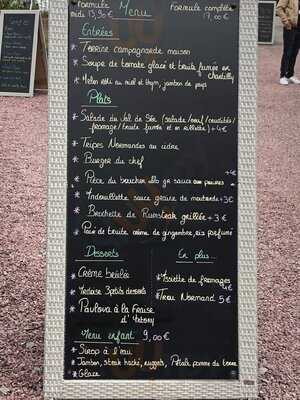 FORMULE Menu Formule complète
midi 13,90 € 17,00 €
Entrées
* Terrine campagnarde maison
* Soupe de tomate glacé et truite fumée en
chantilly
* Melon rôti au miel et thym, jambon de pays
Plats
* Salade du Val de Sée (salade/oeuf/crudités/
fromage/truite fumée et en rillette) +4€
* Tripes Normandes au cidre
* Burger du chef
+4€
* Pièce du boucher 180 gr sauce aux poivres
* Andouillette sauce graine de moutarde +3€
* Brochette de Rumsteak grillée +3€
* Pavé de truite crème de gingembre, riz parfumé
Desserts En plus...
* Crème brûlée
* Assiette de fromages
4€
* Ardoise 3 petits desserts
* Trou Normand 5€
* Pavlova à la fraise
d'
Menu enfant 9,00€
* Sirop à l'eau
* Jambon, steak haché, nuggets, pomme de terre
* Glace